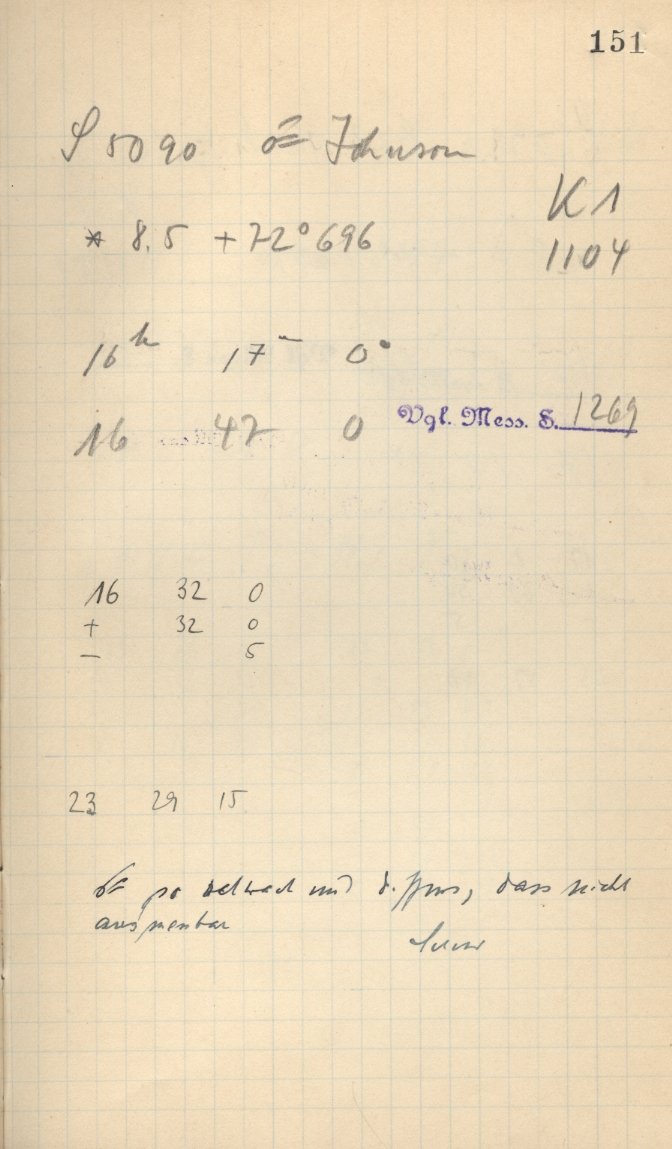 151
S 5090 Johnson
K 1
* 8.5 +72° 696
1104
16h 17m 0s
16 47 0 Vgl. Mess. S. 1269
16 32 0
+ 32 0
– 5
23 29 15
so schwach und diffus, dass nicht
ausmessbar